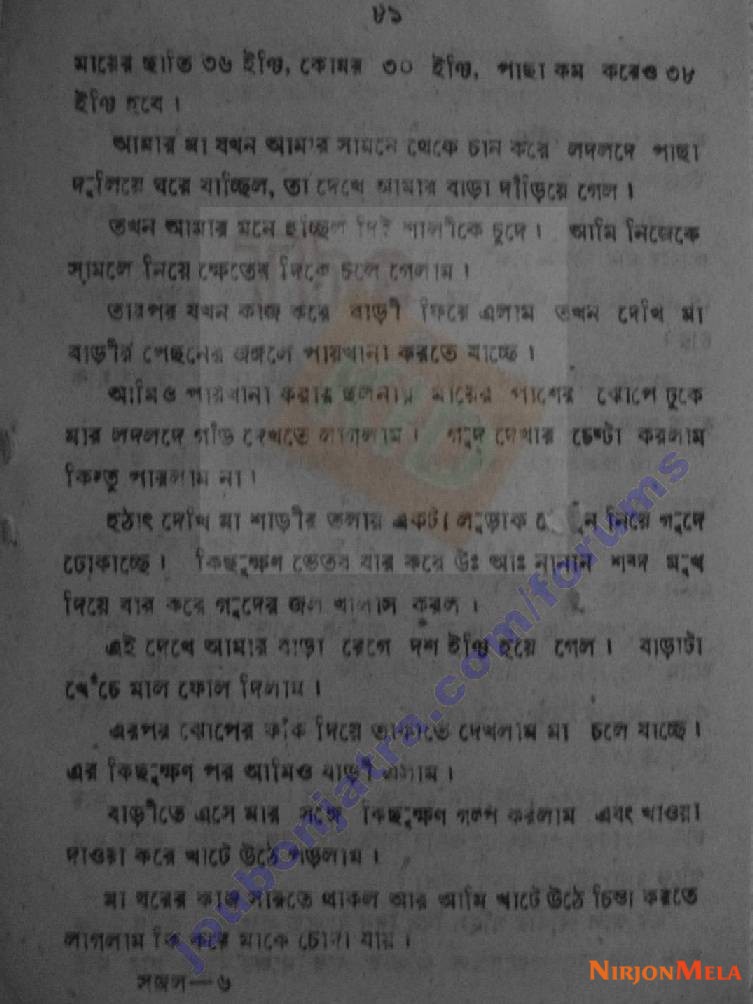 ৮১
মায়ের ছাতি ৩৬ ইঞ্চি, কোমর ৩০ ইঞ্চি, পাছা কম করেও ৩৮
ইঞ্চি হবে।
আমার মা যখন আমার সামনে থেকে চান করে লদলদে পাছা
দুলিয়ে ঘরে যাচ্ছিল, তা দেখে আমার বাড়া দাঁড়িয়ে গেল।
তখন আমার মনে হচ্ছিল দিই শালীকে চুদে। আমি নিজেকে
সামলে নিয়ে ক্ষেতের দিকে চলে গেলাম।
তারপর যখন কাজ করে বাড়ী ফিরে এলাম তখন দেখি মা
বাড়ীর পেছনের জঙ্গলে পায়খানা করতে যাচ্ছে।
আমিও পায়খানা করার ছলনায় মায়ের পাশের ঝোপে ঢুকে
মার লদলদে গাঁড় দেখতে লাগলাম। গুদ দেখার চেষ্টা করলাম
কিন্তু পারলাম না।
হঠাৎ দেখি মা শাড়ীর তলায় একটা নিয়ে গুদে
ঢোকাচ্ছে। কিছুক্ষণ ভেতর বার করে উঃ আঃ নানান শব্দ মুখ
দিয়ে বার করে গুদের জল খালাস করল।
এই দেখে আমার বাড়া রেগে দশ ইঞ্চি হয়ে গেল। বাড়াটা
খেঁচে মাল ফেলে দিলাম।
এরপর ঝোপের ফাঁক দিয়ে তাকাতে দেখলাম মা চলে যাচ্ছে।
এর কিছুক্ষণ পর আমিও বাড়ী এলাম।
বাড়ীতে এসে মার সঙ্গে কিছুক্ষণ গল্প করলাম এবং খাওয়া
দাওয়া করে খাটে উঠে পড়লাম।
মা ঘরের কাজ সারতে থাকল আর আমি খাটে উঠে চিন্তা করতে
লাগলাম কি করে মাকে চোদা যায়।
সজল—৬
joubonjatra.com/forums
NIRJONMELA